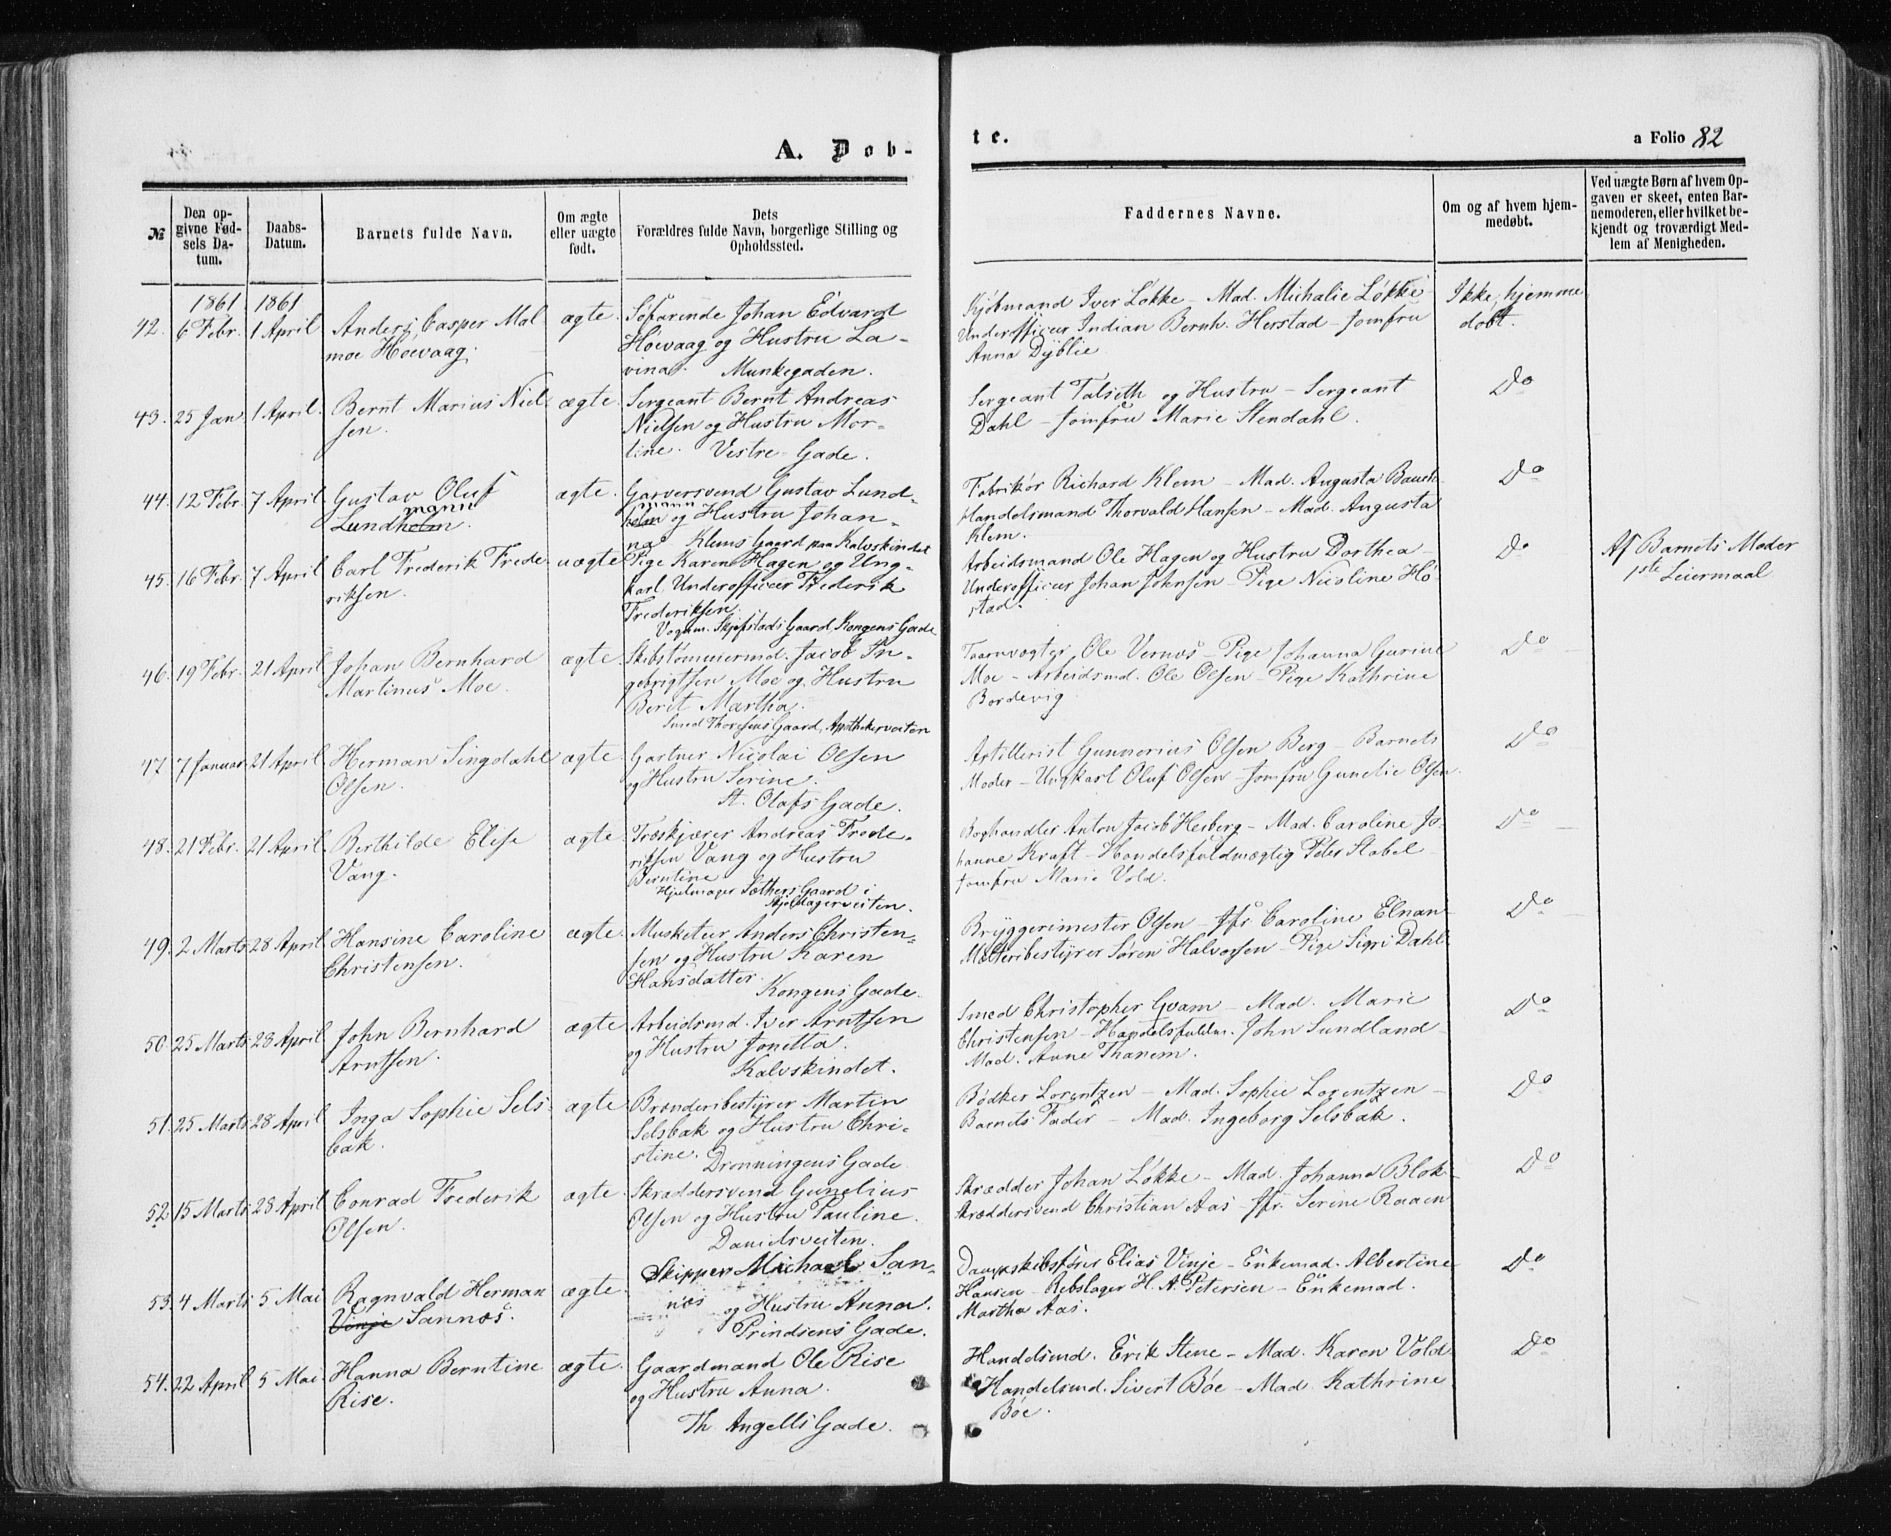 A. Døb-
№
Den op-
givne Fød-
sels Da-
tum.
Daabs-
Datum.
Barnets fulde Navn.
Om ægte
eller uægte
født.
Dets
Forældres fulde Navn, borgerlige Stilling og
Opholdssted.
1861 1861
42. 6 Febr. 1 April Anders Casper Mal ægte. Søfarende Johan Edvard
moe Hoevaag. Hoevaag og Hustru La-
vina. Munkegaden.
43. 25 Jan. 1 April. Bernt Marius Niel ægte. Sergeant Bernt Andreas
sen. Nielsen og Hustru Mor-
tine. Vestre Gade.
44. 12 Febr. 7 April Gustav Oluf ægte. Garversvend Gustav Lund-
mann mann
Lundholm. holm og Hustru Johan-
na Klems Gaard paa Kalvskindet
45. 16 Febr. 7 April Carl Frederik Frede uægte Pige Karen Hagen og Ung-
riksen. karl Underofficeer Frederik
Frederiksen.
Skjefstads Gaard, Kongens Gade
46. 19 Febr. 21 April Johan Bernhard ægte Skibstømmermd. Jacob In-
Martinus Moe. gebrigtsen Moe og Hustru
Berit Martha.
Smed Thoresens Gaard, Apothekerveiten
47. 7 Januar 21 April Herman Singdahl ægte. Gartner Nicolai Olsen
Olsen. og Hustru Serine.
St. Olafs Gade.
48. 21 Febr. 21 April Berthilde Elise ægte Træskjærer Andreas Frede-
Vang. riksen Vang og Hustru
Berntine
Hjulmager Sæthers Gaard i
49. 2 Marts 28 April Hansine Caroline ægte. Musketeer Anders Christen-
Christensen. sen og Hustru Karen
Hansdatter.
Kongens Gade.
50 25 Marts 28 April John Bernhard ægte Arbeidsmd. Iver Arntsen
Arntsen. og Hustru Jonetta.
Kalvskindet.
51. 25 Marts 28 April Inga Sophie Sels- ægte. Brænderibestyrer Martin
bak. Selsbak og Hustru Chri-
stine. Dronningens Gade
52. 15 Marts 28 April Conrad Frederik ægte. Skræddersvend Gunelius
Olsen. Olsen og Hustru Pauline.
Danielsveiten.
53. 4 Marts 5 Mai Ragnvald Herman ægte. Skipper Michael San-
Vinje Sannæs. næs og Hustru Anna.
Prindsens Gade.
54. 22 April 5 Mai Hanna Berntine ægte. Gaardmand Ole Rise
Rise. og Hustru Anna.
Th Angells Gade.
te.
a Folio 82
Faddernes Navne.
Om og af hvem hjem-
medøbt.
Ved uægte Børn af hvem Op-
gaven er skeet, enten Bar-
nemoderen, eller hvilket be-
kjendt og troværdigt Med-
lem af Menigheden.
Kjøbmand Iver Løkke - Mad. Michalie Løkke Ikke hjemme
Underofficeer Indian Bernh. Herstad - Jomfru døbt.
Anna Dyblie
Sergeant Talseth og Hustru - Sergeant Do
Dahl - Jomfru Marie Stendahl.
Fabrikør Richard Klem - Mad. Augusta Bauch Do
Handelsmand Thorvald Hansen - Mad. Augusta
Klem.
Arbeidsmand Ole Hagen og Hustru Dorthea - Do Af Barnets Moder
Underofficeer Johan Johnsen - Pige Nicoline Ho 1ste Leiermaal
stad.
Taarnvægter Ole Vernøs - Pige Johanna Gurine Do
Moe - Arbeidsmd. Ole Olsen - Pige Kathrine
Bordevig
Artillerist Gunnerius Olsen Berg - Barnets Do
Moder - Ungkarl Oluf Olsen - Jomfru Gunelie Olsen.
Boghandler Anton Jacob Hesberg - Mad. Caroline Jo- Do
hanne Kraft - Handelsfuldmægtig Peter Stabel -
Jomfru Marie Vold.
Bryggerimester Olsen - Jfr. Caroline Elnan- Do
Mølleribestyrer Søren Halvorsen - Pige Sigri Dahl.
Smed Christopher Qvam - Mad. Marie Do
Christensen - Handelsfuldm. John Sundland -
Mad. Anne Thanem.
Bødker Lorentzen - Mad. Sophie Lorentzen - Do
Barnets Fader - Mad. Ingeborg Selsbak.
Skrædder Johan Løkke - Mad. Johanna Blok- Do
Skræddersvend Christian Aas - Jfr. Serine Raaen
Dampskibsfører Elias Vinje - Enkemad. Albertine Do
Hansen - Rebslager H. A. Petersen - Enkemad.
Martha Aas.
Handelsmd. Erik Stene - Mad. Karen Vold Do
Handelsmd. Sivert Bøe - Mad. Kathrine
Bøe.